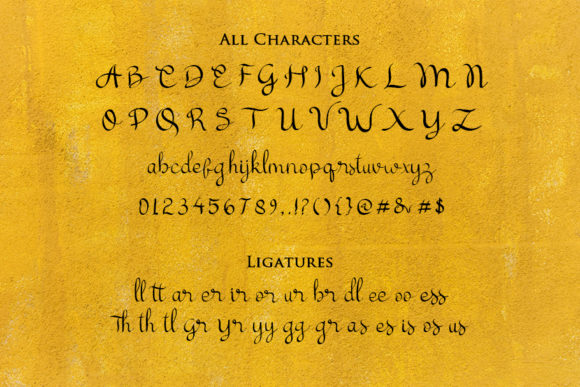 All Characters
A B C D E F G H I J K L M N
O P Q R S T U V W X Y Z
abcdefghijklmnopqrstuvwxyz
0123456789,.!?(){}@#&#$
Ligatures
ll tt ar er ir or ur br dl ee oo ess
Th th tl Gr Yr yy gg gr as es is os us